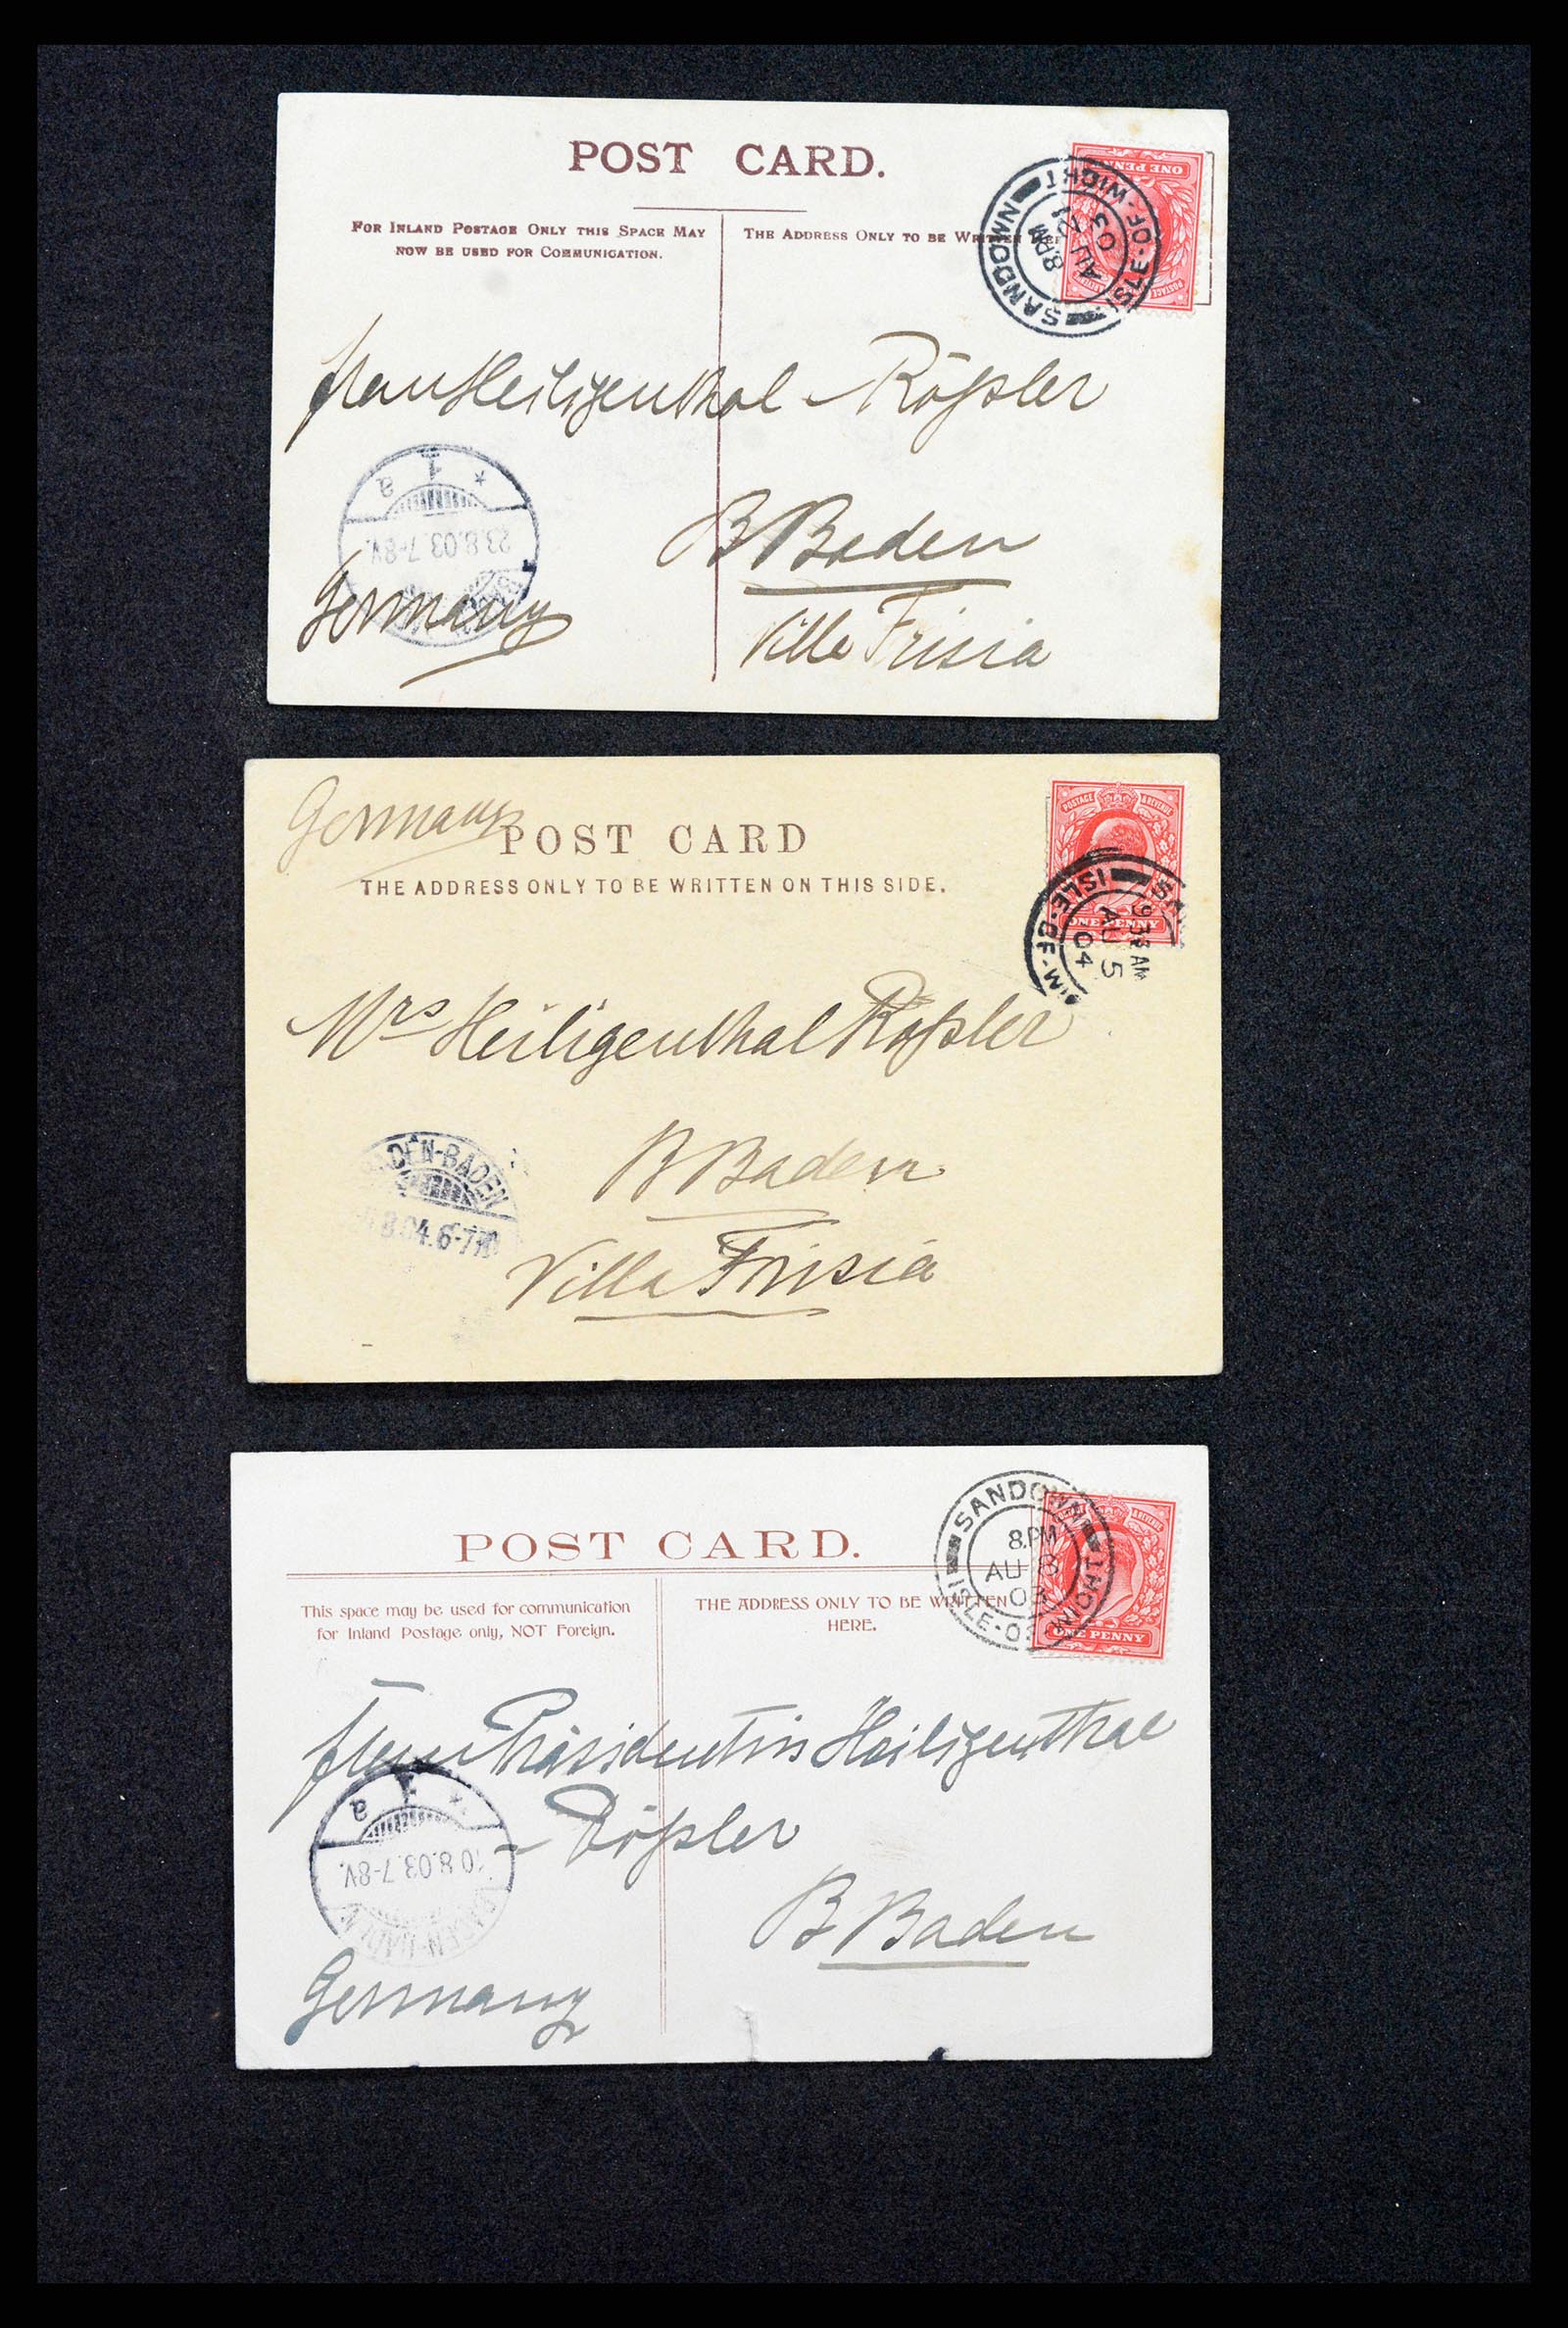 POST CARD.
FOR INLAND POSTAGE ONLY THIS SPACE MAY
NOW BE USED FOR COMMUNICATION.
THE ADDRESS ONLY TO BE WRITTEN
ONE PENNY
POSTAGE
SANDOWN ISLE-OF-WIGHT
8 PM
AU 21
03
Frau Heiligenthal - Rößler
B Baden
Villa Frisia
Germany
a 1 *
23.8.03.7-8V.
Germany
POST CARD
THE ADDRESS ONLY TO BE WRITTEN ON THIS SIDE.
POSTAGE & REVENUE
ONE PENNY
ISLE-OF-WI
AU 5
04
Mrs Heiligenthal Rößler
B Baden
Villa Frisia
DEN-BADEN
8.04.6-7
POST CARD.
This space may be used for communication
for Inland Postage only, NOT Foreign.
THE ADDRESS ONLY TO BE WRITTEN
HERE.
& REVENUE
ONE PENNY
SANDOWN
8.PM
AU 8
03
ISLE-OF WIGHT
Frau Präsidentin Heiligenthal
- Rößler
B Baden
Germany
a 1 *
10.8.03.7-8V.
BADEN-BADEN